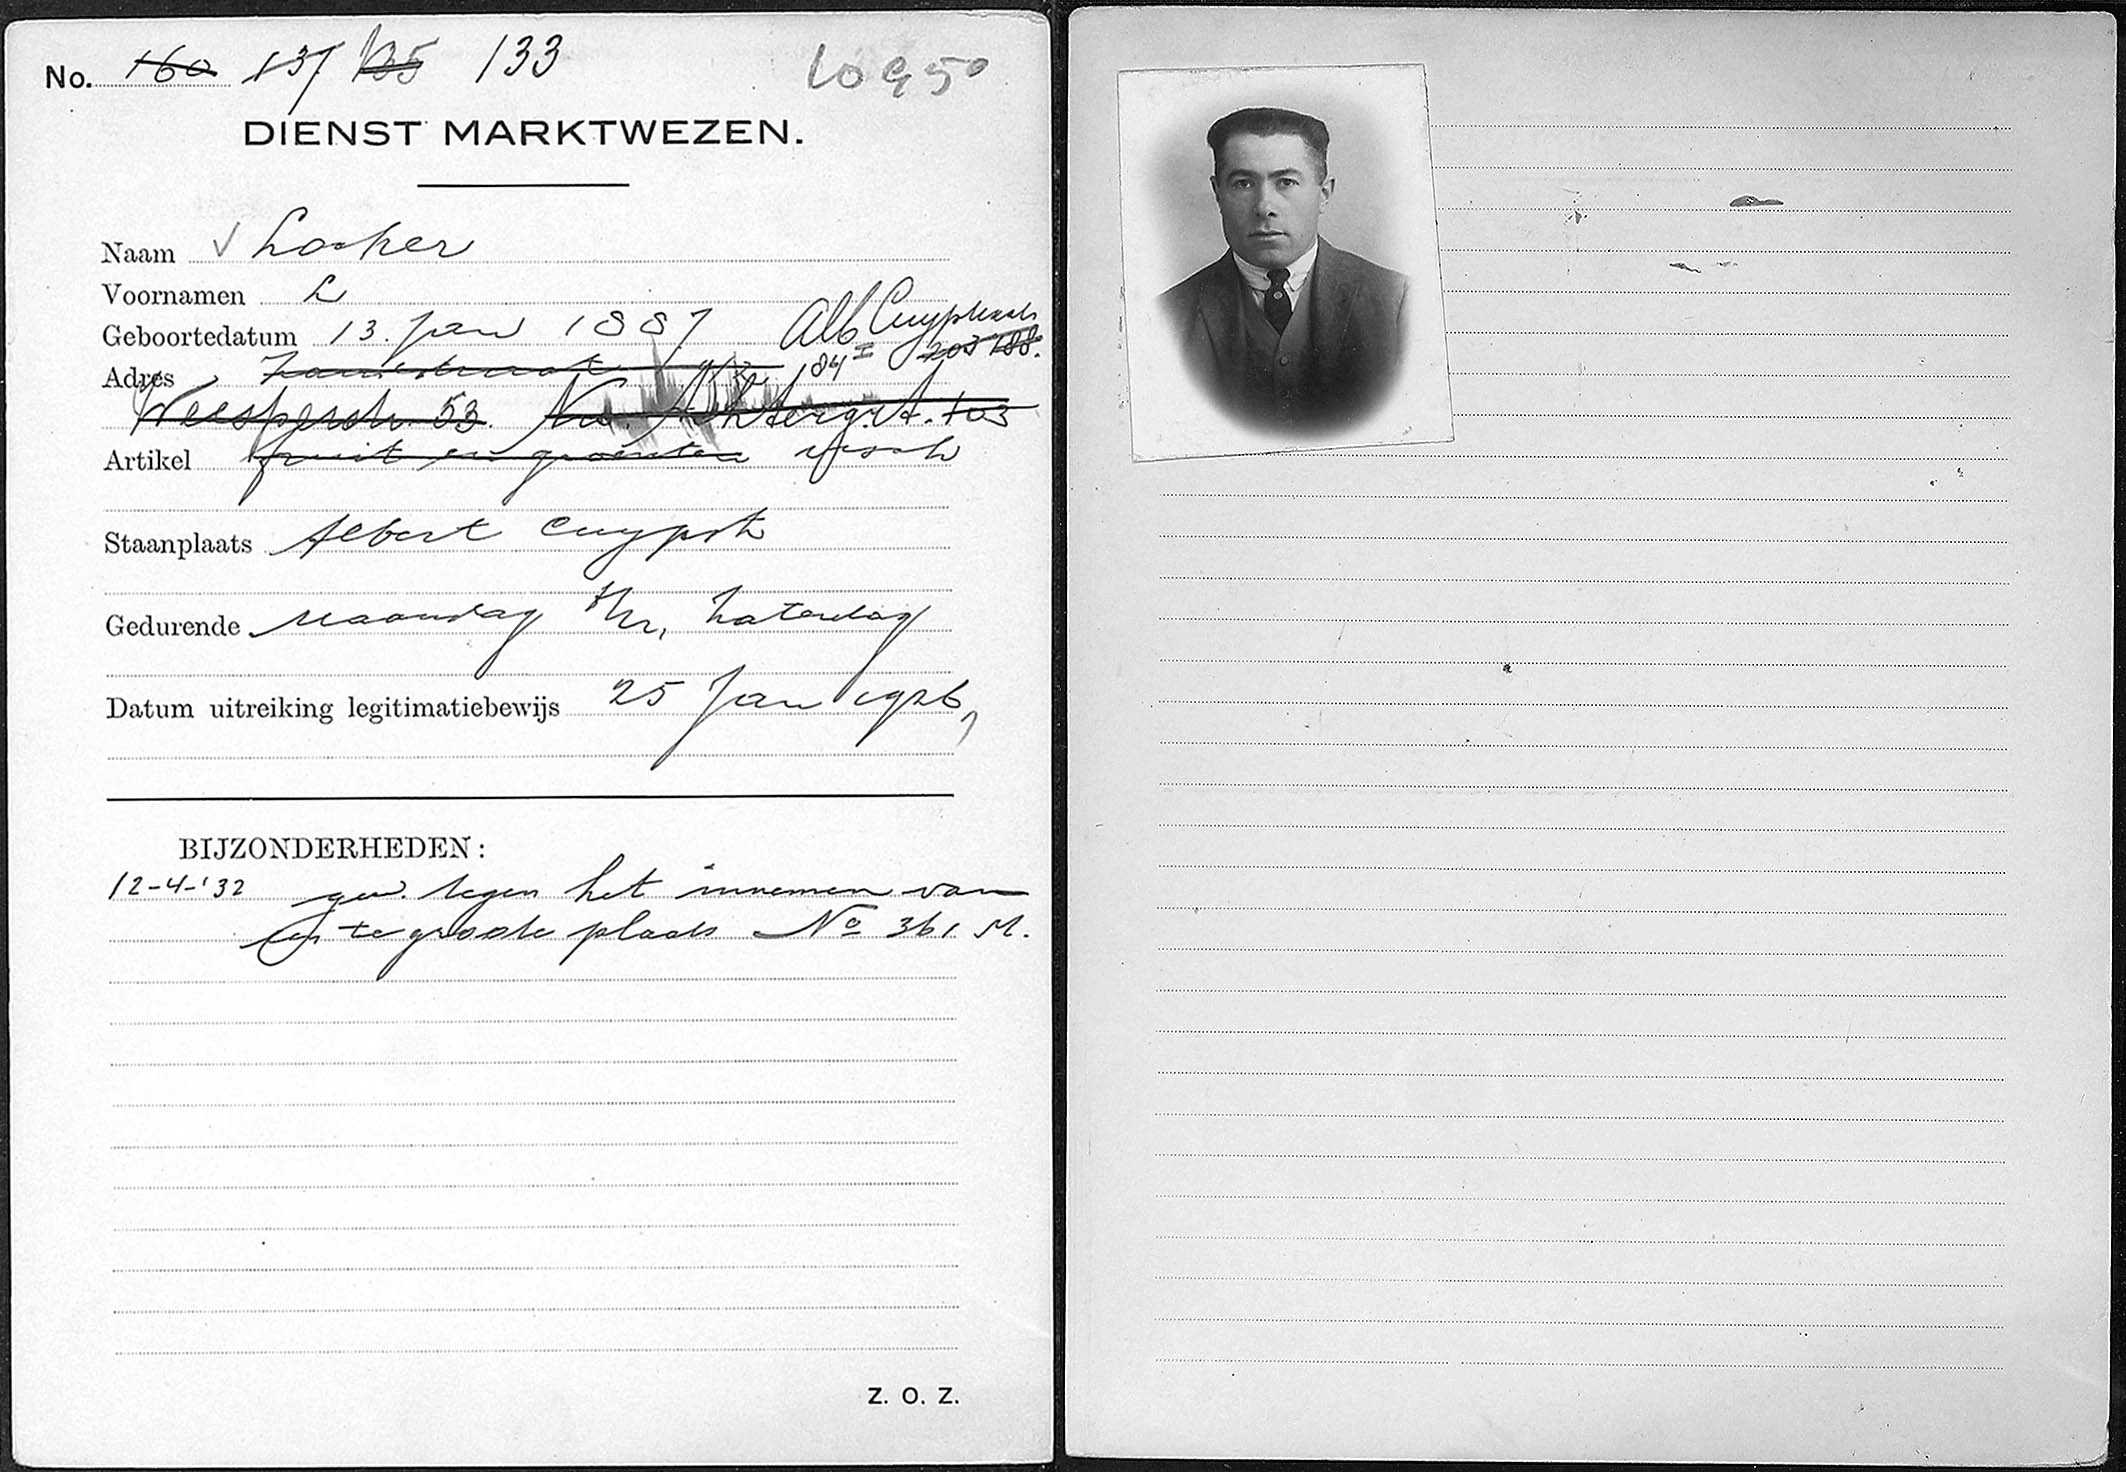 No. 160 137 135 133 10950
DIENST MARKTWEZEN.
Naam Looper
Voornamen L
Geboortedatum 13. Jan 1887 Alb Cuypstraat
Adres Zanstraat 184 I 203 188.
Weesperstr. 53. Nw. Achtergrt. 103
Artikel fruit en groenten visch
Staanplaats Albert Cuypstr
Gedurende Maandag t/m. Zaterdag
Datum uitreiking legitimatiebewijs 25 Jan 1926
BIJZONDERHEDEN:
12-4-'32 gew. tegen het innemen van
een te groote plaats No 361 M.
Z. O. Z.